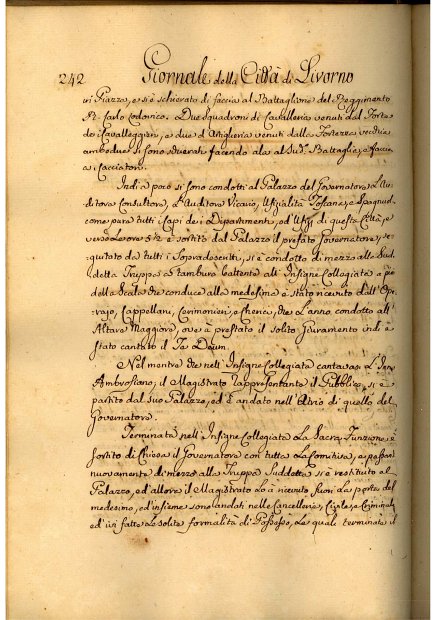 242 Giornale della Città di Livorno
in Piazza, e si è schierato di faccia al Battaglione del Reggimento
R. Carlo Lodovico. Due squadroni di Cavalleria venuti dal Forte
dei Cavalleggieri, e due d'Artiglieria venuti dalla Fortezza vecchia
ambedue si sono facendo ala al Sud.º Battaglione, e faccia
a i Cacciatori.
Indi a poco si sono condotti al Palazzo del Governatore L'Au-
ditore Consultore, L'Auditore Vicario, Ufizialità Toscana, e Spagnuola
come pure tutti i Capi dei Dipartimenti, ed Ufizj di questa Città, e
verso Le ore 5½ è sortito dal Palazzo il prefato Governatore, se-
guitato da tutti i Sopradescritti, si è condotto di mezzo alla Sud-
detta Truppa a tamburo battente all'Insigne Collegiata a piè
della Scala che conduce alla medesima è stato ricevuto dall'Ope-
rajo, Cappellani, Cerimonieri, e Cherici, che L'anno condotto all'
Altare Maggiore, ove à prestato il solito Giuramento indi è
stato cantato il Te Deum.
Nel mentre che nell'Insigne Collegiata cantavasi L'Inno
Ambrosiano, il Magistrato rappresentante il Pubblico, si è
partito dal suo Palazzo, ed è andato nell'Atrio di quello del
Governatore.
Terminata nell'Insigne Collegiata La Sacra Funzione, è
sortito di Chiesa il Governatore con tutta La Comitiva, e passando
nuovamente di mezzo alla Truppa Suddetta si è restituito al
Palazzo, ed allora il Magistrato Lo à ricevuto fuori La porta del
medesimo, ed insieme sono andati nelle Cancellerie, Civile, e Criminale
ed' ivi fatte Le solite formalità di Possesso, Le quali terminate il